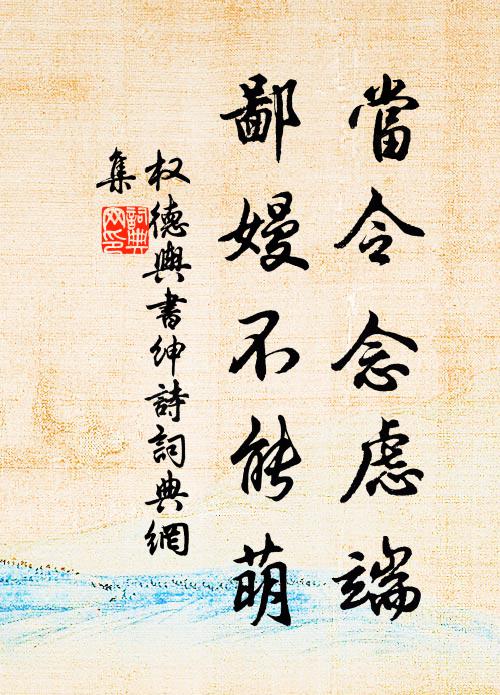 當令念慮端
鄙嫚不能萌
权德輿書紳詩詞典網
集
詞典
网印